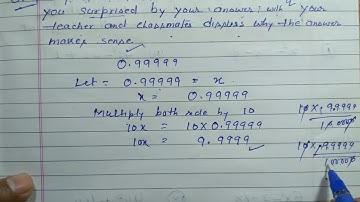 you surprised by your answer? with your
teacher and classmates discuss why the answer
makes sense.
0.99999
Let - 0.99999 = x
x = 0.99999
Multiply both side by 10
10x = 10 X 0.99999
10x = 9.9999
10 X 99999
100000